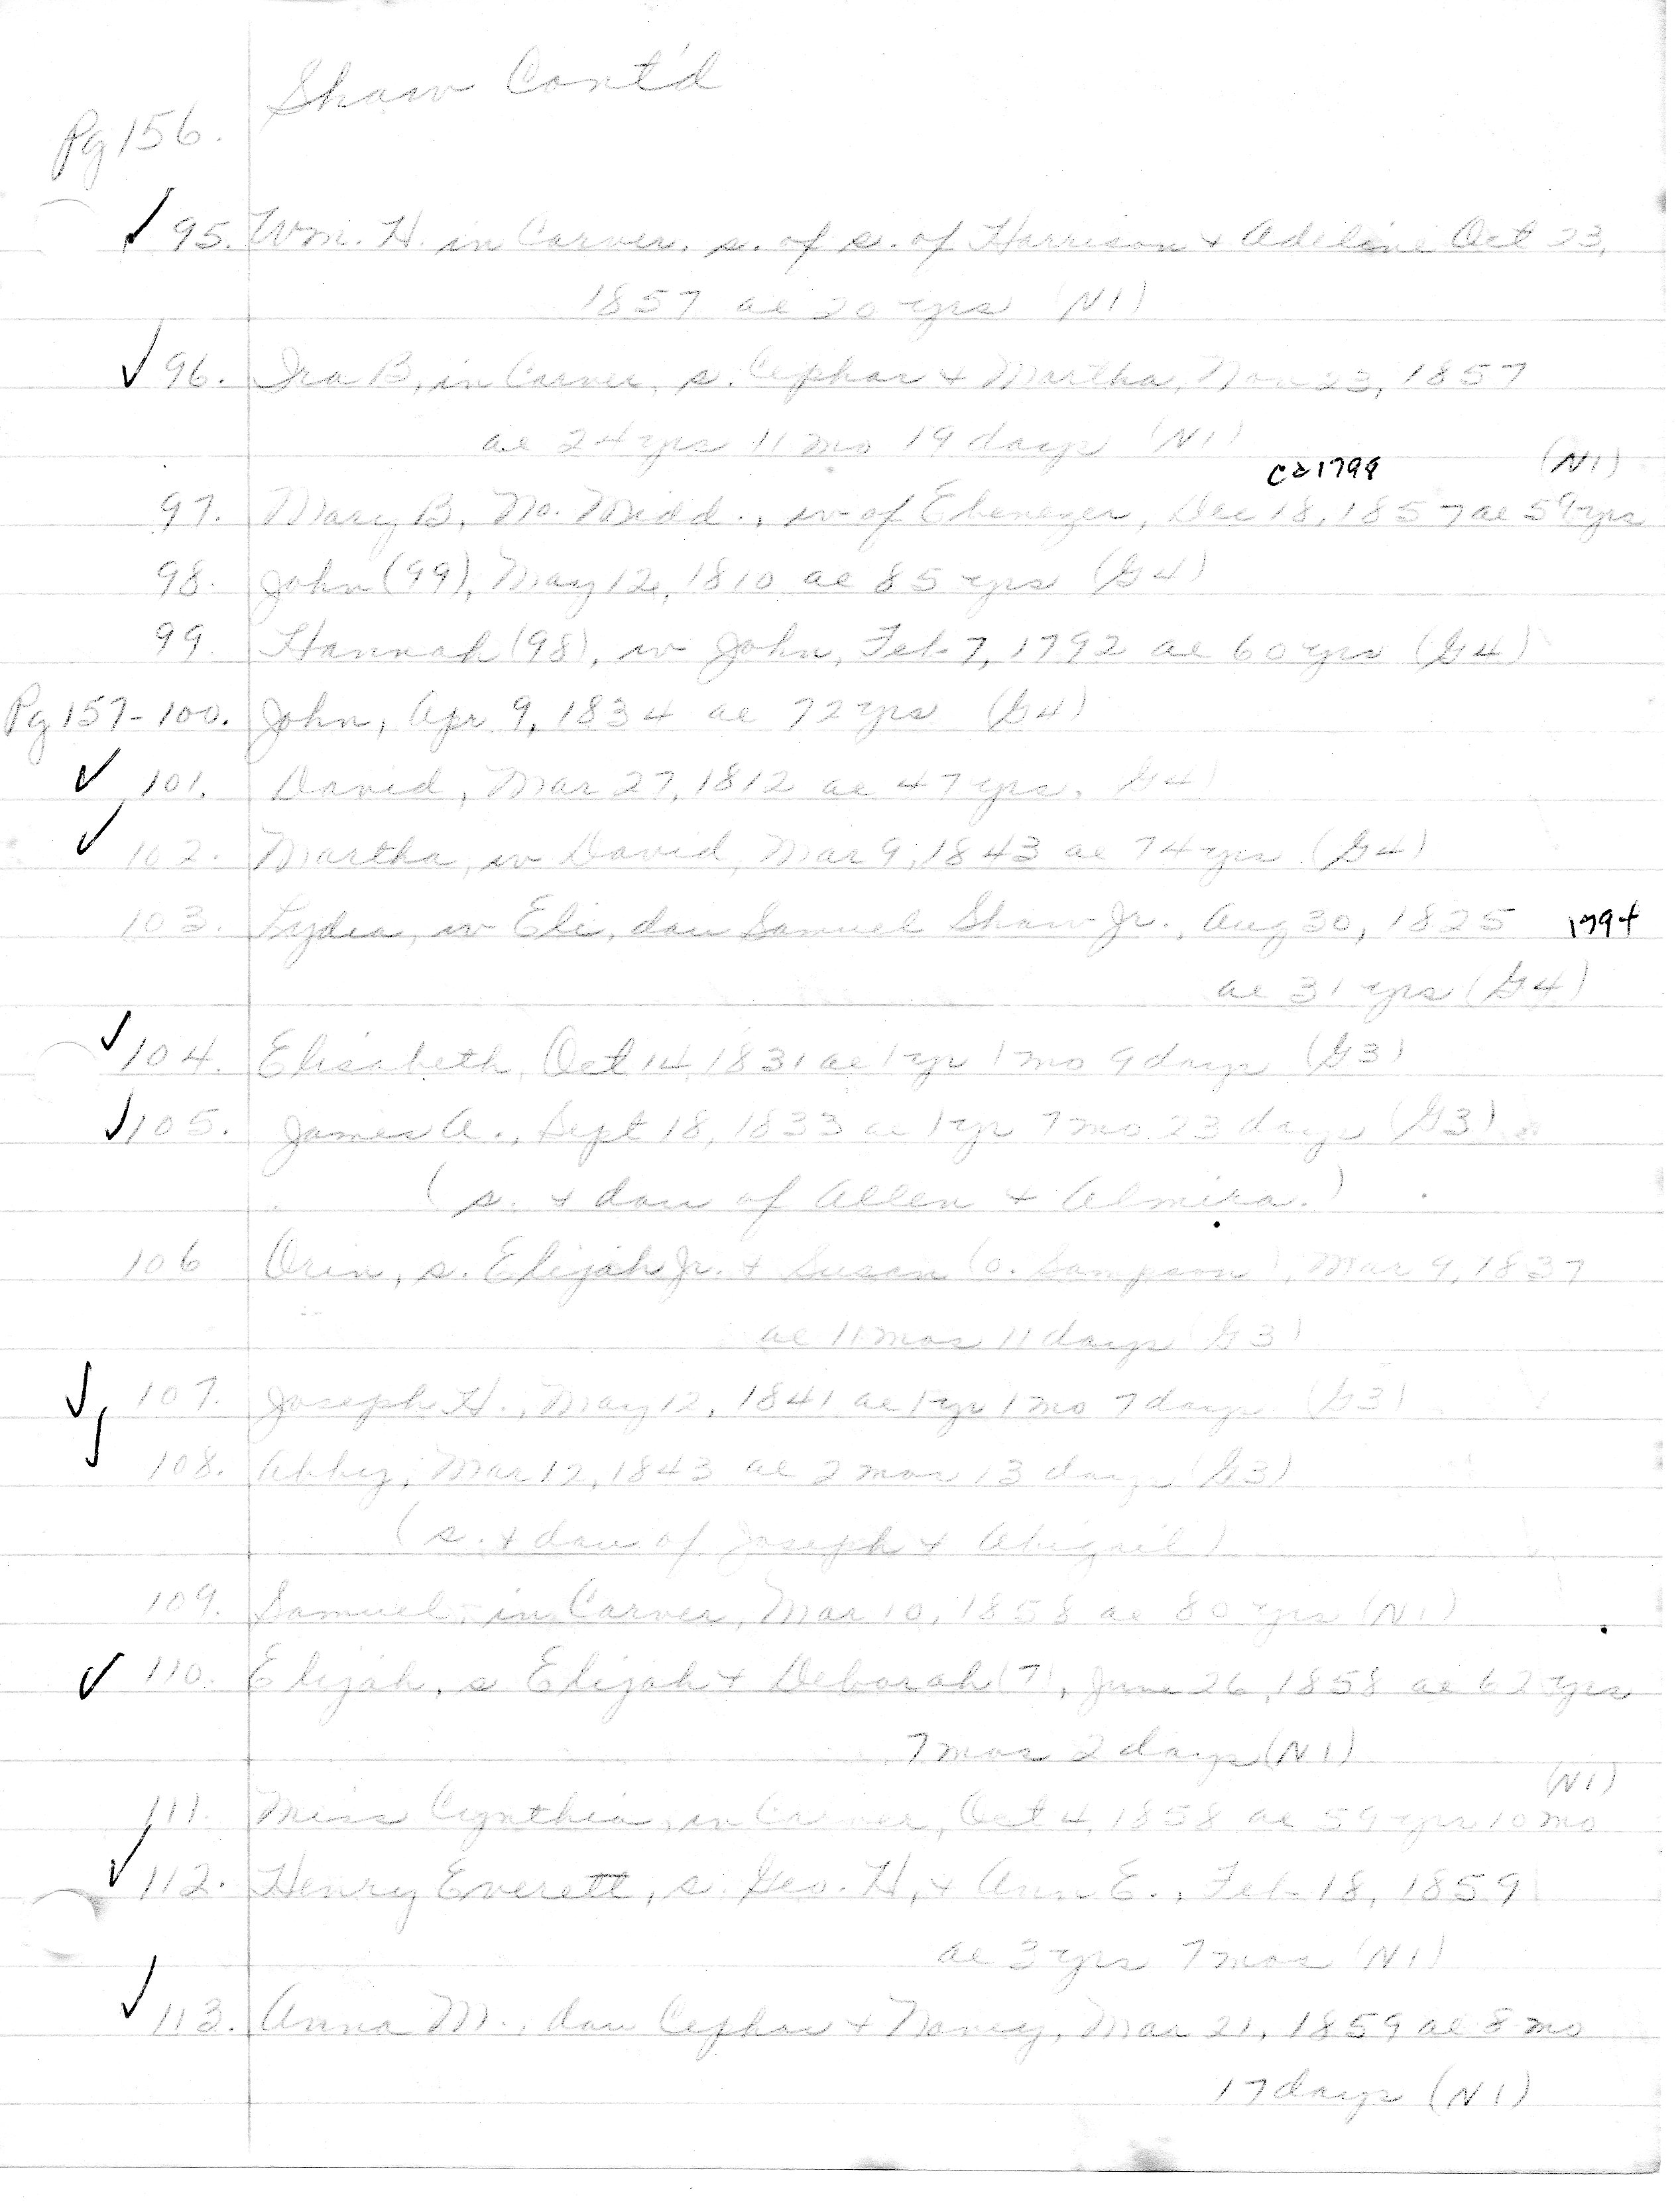 Shaw Cont'd
Pg 156.
✓ 95. Wm. H. in Carver. s. of s. of Harrison + Adeline Oct 23,
1857 ae 20 yrs (N1)
✓ 96. Ira B, in Carver, s. Cephas + Martha, Nov 23, 1857
ae 24 yrs 11 mo 19 days (N1)
ca 1798 (N1)
97. Mary B, No. Midd., w of Ebenezer, Dec 18, 1857 ae 59 yrs
98. John (99), May 12, 1810 ae 85 yrs (G4)
99. Hannah (98), w John, Feb 7, 1792 ae 60 yrs (G4)
Pg 157- 100. John, Apr 9, 1834 ae 72 yrs (G4)
✓ 101. David, Mar 27, 1812 ae 47 yrs. G4)
✓ 102. Martha, w David, Mar 9, 1843 ae 74 yrs (G4)
103. Lydia, w Eli, dau Samuel Shaw Jr., Aug 30, 1825 1794
ae 31 yrs (G4)
✓ 104. Elisabeth, Oct 14, 1831 ae 1 yr 1 mo 9 days (G3)
✓ 105. James A., Sept 18, 1833 ae 1 yr 7 mo 23 days (G3)
(s. + dau of Allen + Almira.)
106 Orin, s. Elijah Jr. + Susan (o. Sampson), Mar 9, 1837
ae 11 mos 11 days (G3)
✓ 107. Joseph H., May 12, 1841 ae 1 yr 1 mo 7 days (G3)
✓ 108. Abby, Mar 12, 1843 ae 2 mos 13 days (G3)
(s. + dau of Joseph + Abigail)
109. Samuel, in Carver, Mar 10, 1858 ae 80 yrs (N1)
✓ 110. Elijah, s Elijah + Deborah (7), June 26, 1858 ae 62 yrs
7 mos 2 days (N1)
(N1)
111. Miss Cynthia, in Carver, Oct 4, 1858 ae 59 yrs 10 mo
✓ 112. Henry Everett, s. Geo. H, + Ann E., Feb 18, 1859
ae 3 yrs 7 mos (N1)
✓ 113. Anna M., dau Cephas + Nancy, Mar 21, 1859 ae 8 mo
17 days (N1)